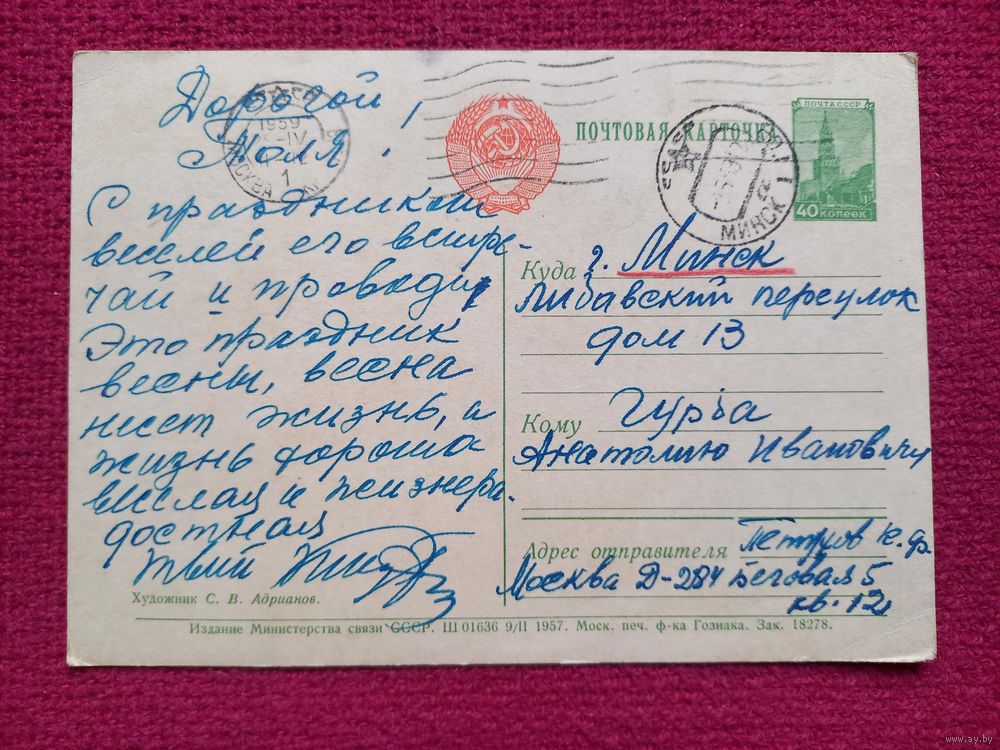 Дорогой
Толя!
С праздником
веселей его встре-
чай и проводи,
Это праздник
весны, весна
несет жизнь, а
жизнь хороша
веселая и жизнера-
достная
Твой
Художник С. В. Адрианов.
1959
IV
МОСКВА
1
ПОЧТОВАЯ КАРТОЧКА
ПОЧТА СССР
40 КОПЕЕК
МИНСК
Куда г. Минск
Либавский переулок
дом 13
Кому Гурба
Анатолию Ивановичу
Адрес отправителя Петров К. Ф.
Москва Д-284 Беговая 5
кв. 12
Издание Министерства связи СССР. Ш 01636 9/II 1957. Моск. печ. ф-ка Гознака. Зак. 18278.
www.ay.by